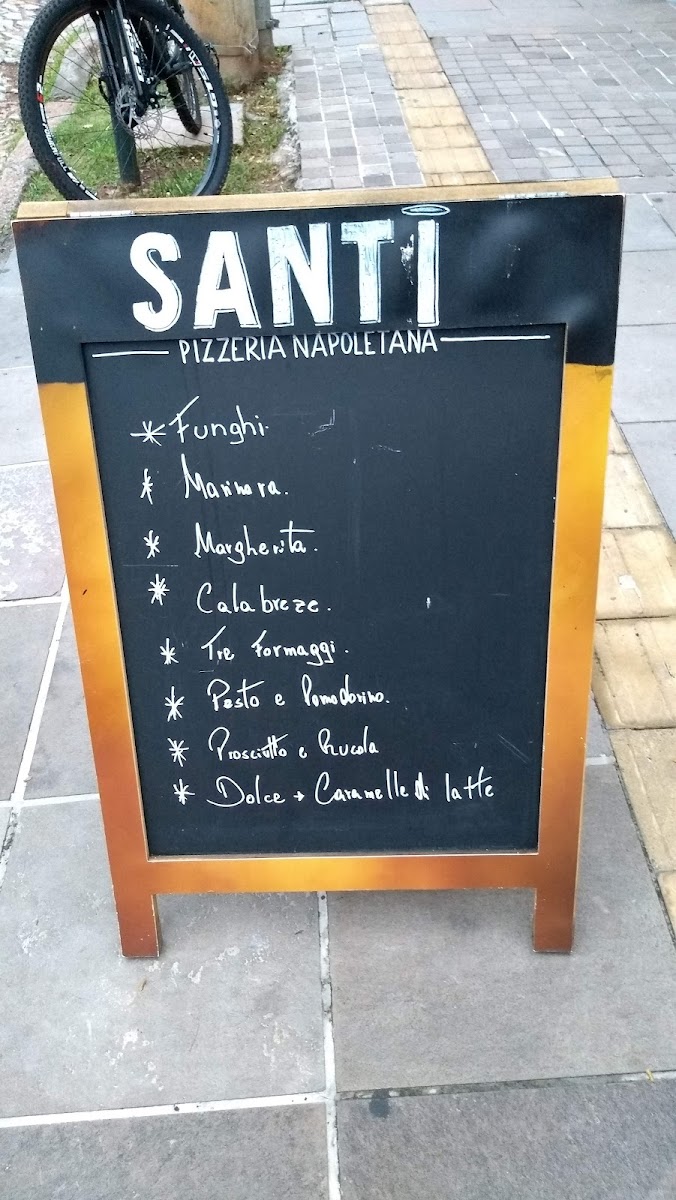 SANTI
PIZZERIA NAPOLETANA
* Funghi.
* Marinara.
* Margherita.
* Calabreze.
* Tre Formaggi.
* Pesto e Pomodorino.
* Prosciutto e Rucola
* Dolce → Caramelle di latte